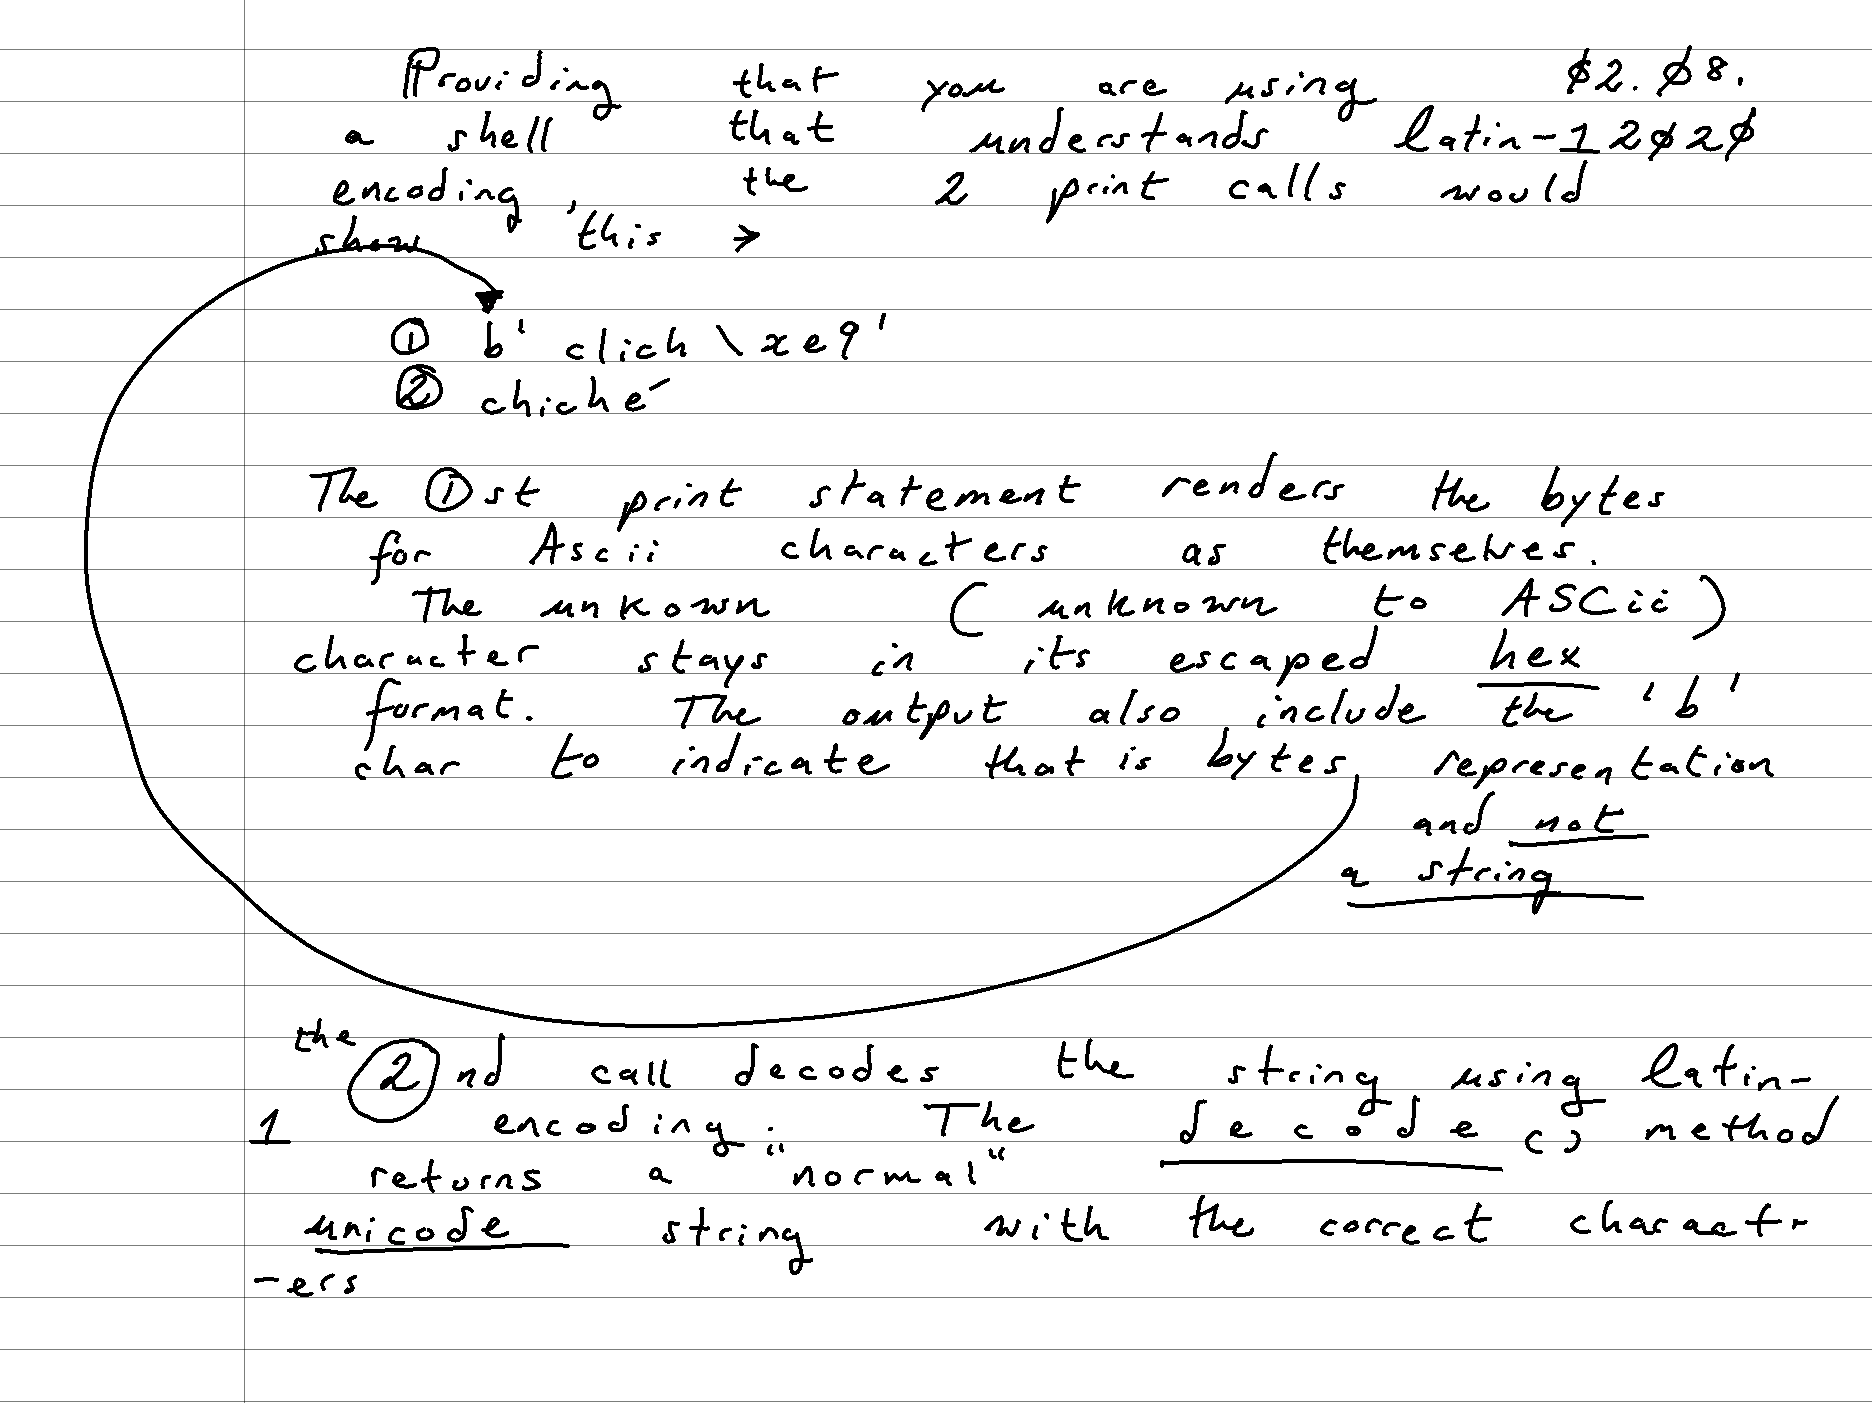 Providing that you are using $2. Ø8.
a shell that understands latin-1 2Ø2Ø
encoding, the 2 print calls would
show this →
① b' clich\xe9'
② chiché
The ①st print statement renders the bytes
for Ascii characters as themselves.
The unkown (unknown to ASCii)
character stays in its escaped hex
format. The output also include the 'b'
char to indicate that is bytes representation
and not
a string
the
② nd call decodes the string using latin-
1 encoding. The decode() method
returns a "normal"
unicode string with the correct charact-
-ers